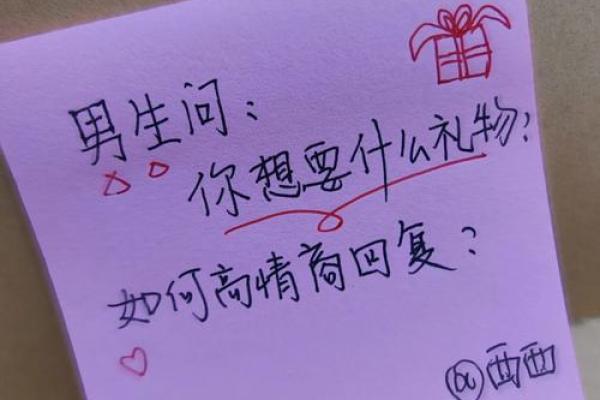 男生问：
你想要什么礼物？
如何高情商回复？
@西西